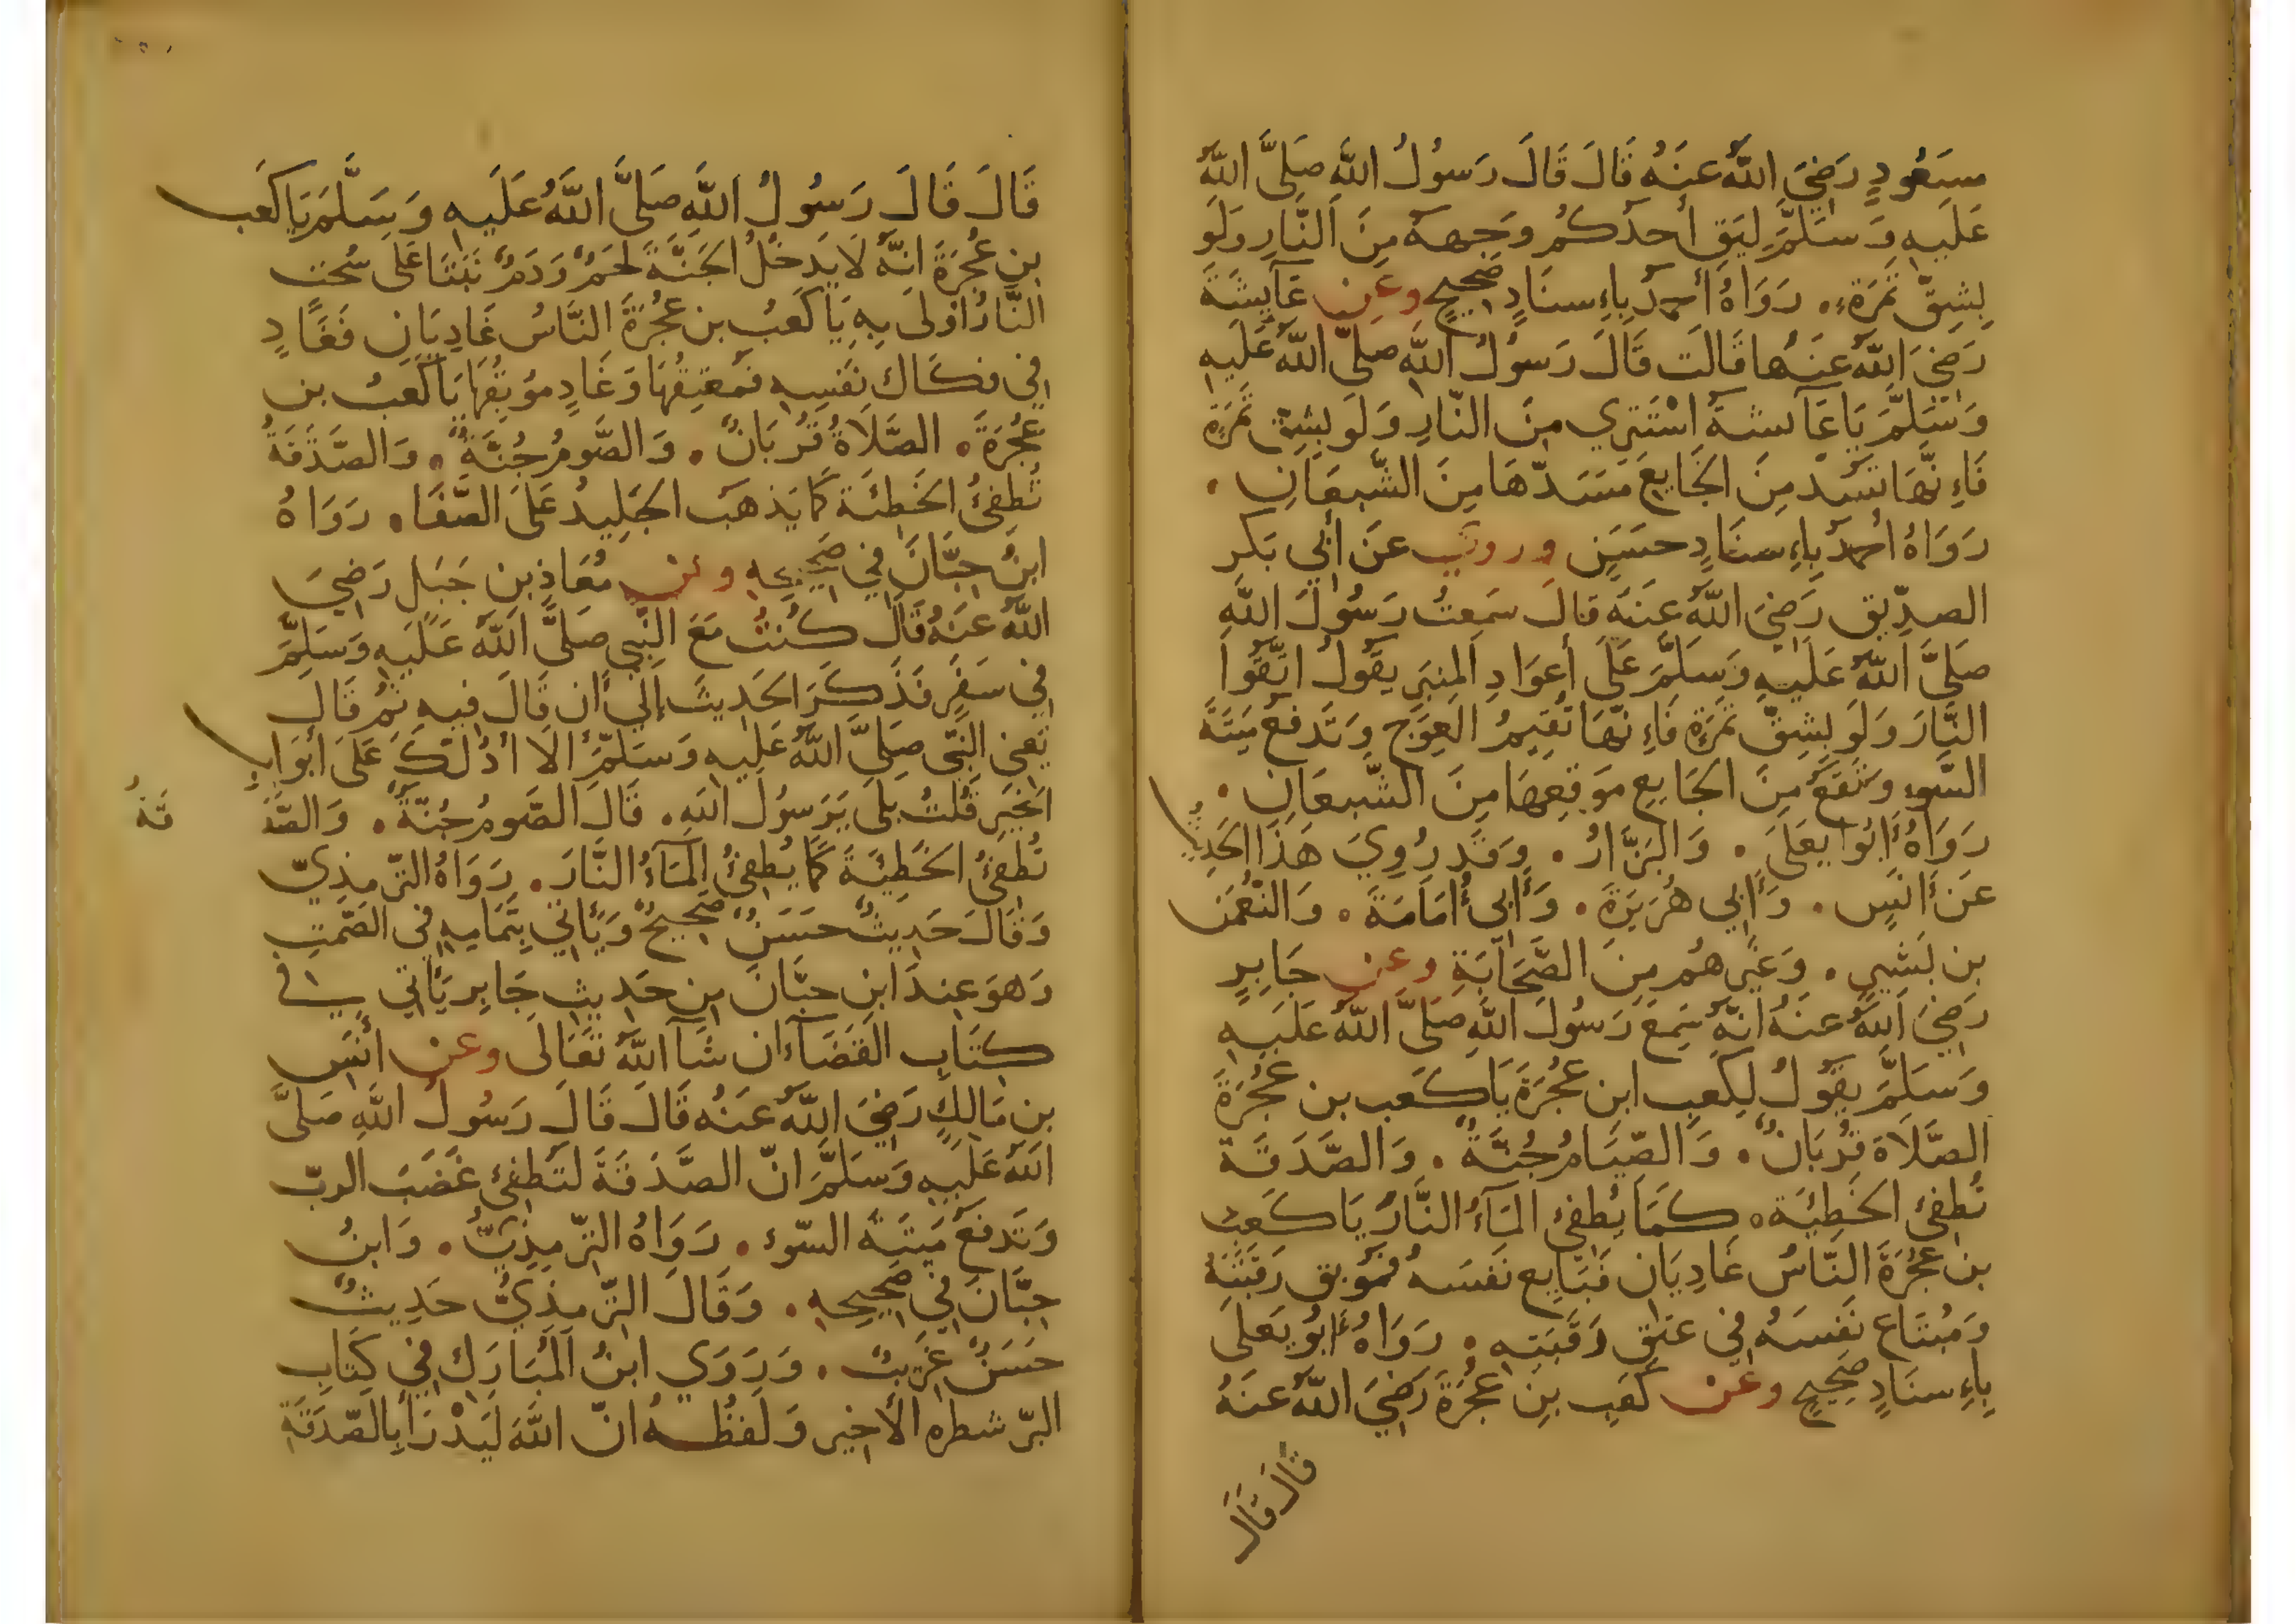 مسعُودٍ رَضِيَ اللَّهُ عنَهُ قَالَ قَالَ رَسُولُ اللَّهِ صَلَّى اللَّهُ
عَلَيهِ وَسَلَّمَ لِيَقِ أحَدُكُم وَجهَهُ مِنَ النَّارِ وَلَو
بِشِقِّ تَمرَةٍ. رَوَاهُ أحمَدُ بإِسنَادٍ صَحِيحٍ وعَن عَآيِشَةَ
رَضِيَ اللَّهُ عَنهَا قَالَت قَالَ رَسُولُ اللَّهِ صَلَّى اللَّهُ عَلَيهِ
وَسَلَّمَ يَا عَآئشَةُ اسْتَتِرِي مِنَ النَّارِ وَلَو بِشِقِّ تَمرَةٍ
فَإِنَّهَا تَسُد مِنَ الجَايِعِ مَسَدَّهَا مِنَ الشَّبعَانِ.
رَوَاهُ أحمَدُ بإِسنَادٍ حسَنٍ ورويَ عَن أبِي بَكر
الصدِّيقِ رَضِيَ اللَّهُ عنَهُ قالَ سَمِعتُ رَسُولَ اللَّهِ
صَلَّى اللَّهُ عَلَيهِ وَسَلَّمَ عَلَى أعوَادِ المِنبَرِ يقُولُ اتَّقُوا
النَّارَ وَلَو بِشِقِّ تَمرَةٍ فَإِنَّهَا تُقِيمُ العِوَجَ وَتَدفَعُ مِيتَةَ
السُّوءِ وَتَقَعُ مِنَ الجَايِعِ مَوقِعهَا مِنَ الشَّبعَانِ.
رَوَاهُ أبُو يَعلَى. وَالبَزَّارُ. وَقَد رُوِيَ هَذَا الحَدِيثُ
عَن أنَسٍ. وَأَبِي هُرَيرَةَ. وَأَبِي أُمَامَةَ. وَالنُّعمَن
بن بَشِيرٍ. وَغَيرِهُم مِنَ الصَّحَابَةِ وعن جَابِرٍ
رَضِيَ اللَّهُ عنَهُ انَّهُ سَمِعَ رَسُولَ اللَّهِ صَلَّى اللَّهُ عَلَيهِ
وَسَلَّمَ يقُولُ لِكَعبِ ابن عُجُرَةَ يَا كَعب بن عُجُرَةَ
الصَّلَاةَ قُربَانٌ. وَالصِّيَامُ جُنَّةٌ. وَالصَّدَقَة
تُطفِئُ الخَطِيَّةَ. كَمَا يُطفِئُ المَآءُ النَّارَ يَا كَعبُ
بن عُجُرَةَ النَّاسُ غَادِيَان فَبَايِع نَفسَهُ فمُوبِق رَقَبَتَهُ
وَمُبتَاع نَفسَهُ فِي عتقِ رَقَبَتِهِ. رَوَاهُ أبُو يَعلَى
بإِسنَادٍ صَحِيحٍ وعَن كَعبِ بِن عُجُرَةَ رَضِيَ اللَّهُ عنَهُ
قالَ قَالَ
قَالَ قَالَ رَسُولُ اللَّهِ صَلَّى اللَّهُ عَلَيهِ وَسَلَّمَ يَا كَعب
بن عُجُرَةَ انَّهُ لَا يَدخُلُ الجَنَّةَ لحَمٌ وَدَمٌ نَبَتَا عَلَى سُحت
النَّارُ اوْلَى بِهِ يَا كَعبُ بن عُجُرَةَ النَّاسُ غَادِيَانِ فَغَادٍ
فِي فكَاك نَفسِهِ فَمُعتِقُهَا وَغَادٍ مُوبِقُهَا يَا كَعبُ بن
عُجُرَةَ. الصَّلَاةُ قُربَانٌ. وَالصَّومُ جُنَّةٌ. وَالصَّدَقَةُ
تُطفِئُ الخَطِئَةَ كَمَا يَذهَبُ الجَلِيدُ عَلَى الصَّفَا. رَوَاهُ
ابنُ حِبَّانَ فِي صَحِيحِهِ وعن مُعَاذِ بن جَبَلٍ رَضِيَ
اللَّهُ عنَهُ قَالَ كُنتُ مَعَ النَّبِي صَلَّى اللَّهُ عَلَيهِ وَسَلَّمَ
فِي سَفَرٍ فَذَكَرَ الحَدِيثَ إلَى أن قَالَ فِيهِ ثُمّ قَالَ
يَعنِي النَّبِيّ صَلَّى اللَّهُ عَلَيهِ وَسَلَّمَ ألا أدُلّكَ عَلَى أبوَابِ
الخَيرِ قُلتُ بلَى يَرَسُولَ اللَّهِ. قَالَ الصَّومُ جُنّةٌ. وَالصَّدَ
قَةُ
تُطفِئُ الخَطِيَّةَ كَمَا يُطفِئُ المَآءُ النَّارَ. رَوَاهُ التِّرمذِيّ
وَقَالَ حَدِيثٌ حسَنٌ صَحِيحٌ وَيَأتِي بتَمَامِهِ فِي الصَّمتِ
وَهوَ عِندَ ابنِ حبَّانَ مِن حَدِيثِ جَابِر يَأتِي فِي
كِتَابِ القَضَآءِ ان شَآ اللَّهُ تَعَالَى وعن أنَسِ
بنِ مَالِكٍ رَضِيَ اللَّهُ عَنهُ قَالَ قَالَ رَسُولُ اللَّهِ صَلَّى
اللَّهُ عَلَيهِ وَسَلَّمَ انّ الصَّدَقَةَ لتُطفِئُ غَضَبَ الربّ
وَتَدفَعُ مِيتَةَ السّوء. رَوَاهُ التِّرمِذِيُّ. وَابنُ
حِبَّانَ فِي صَحِيحِهِ. وَقَالَ التِّرمذِيُّ حَدِيثٌ
حسَنٌ غَرِيبٌ. وَرَوَي ابنُ المُبَارَكِ فِي كِتَابِ
البِرّ شطره الأخِير وَلَفظُهُ انّ اللَّهَ لَيَدْرَأُ بِالصَّدَقَةِ